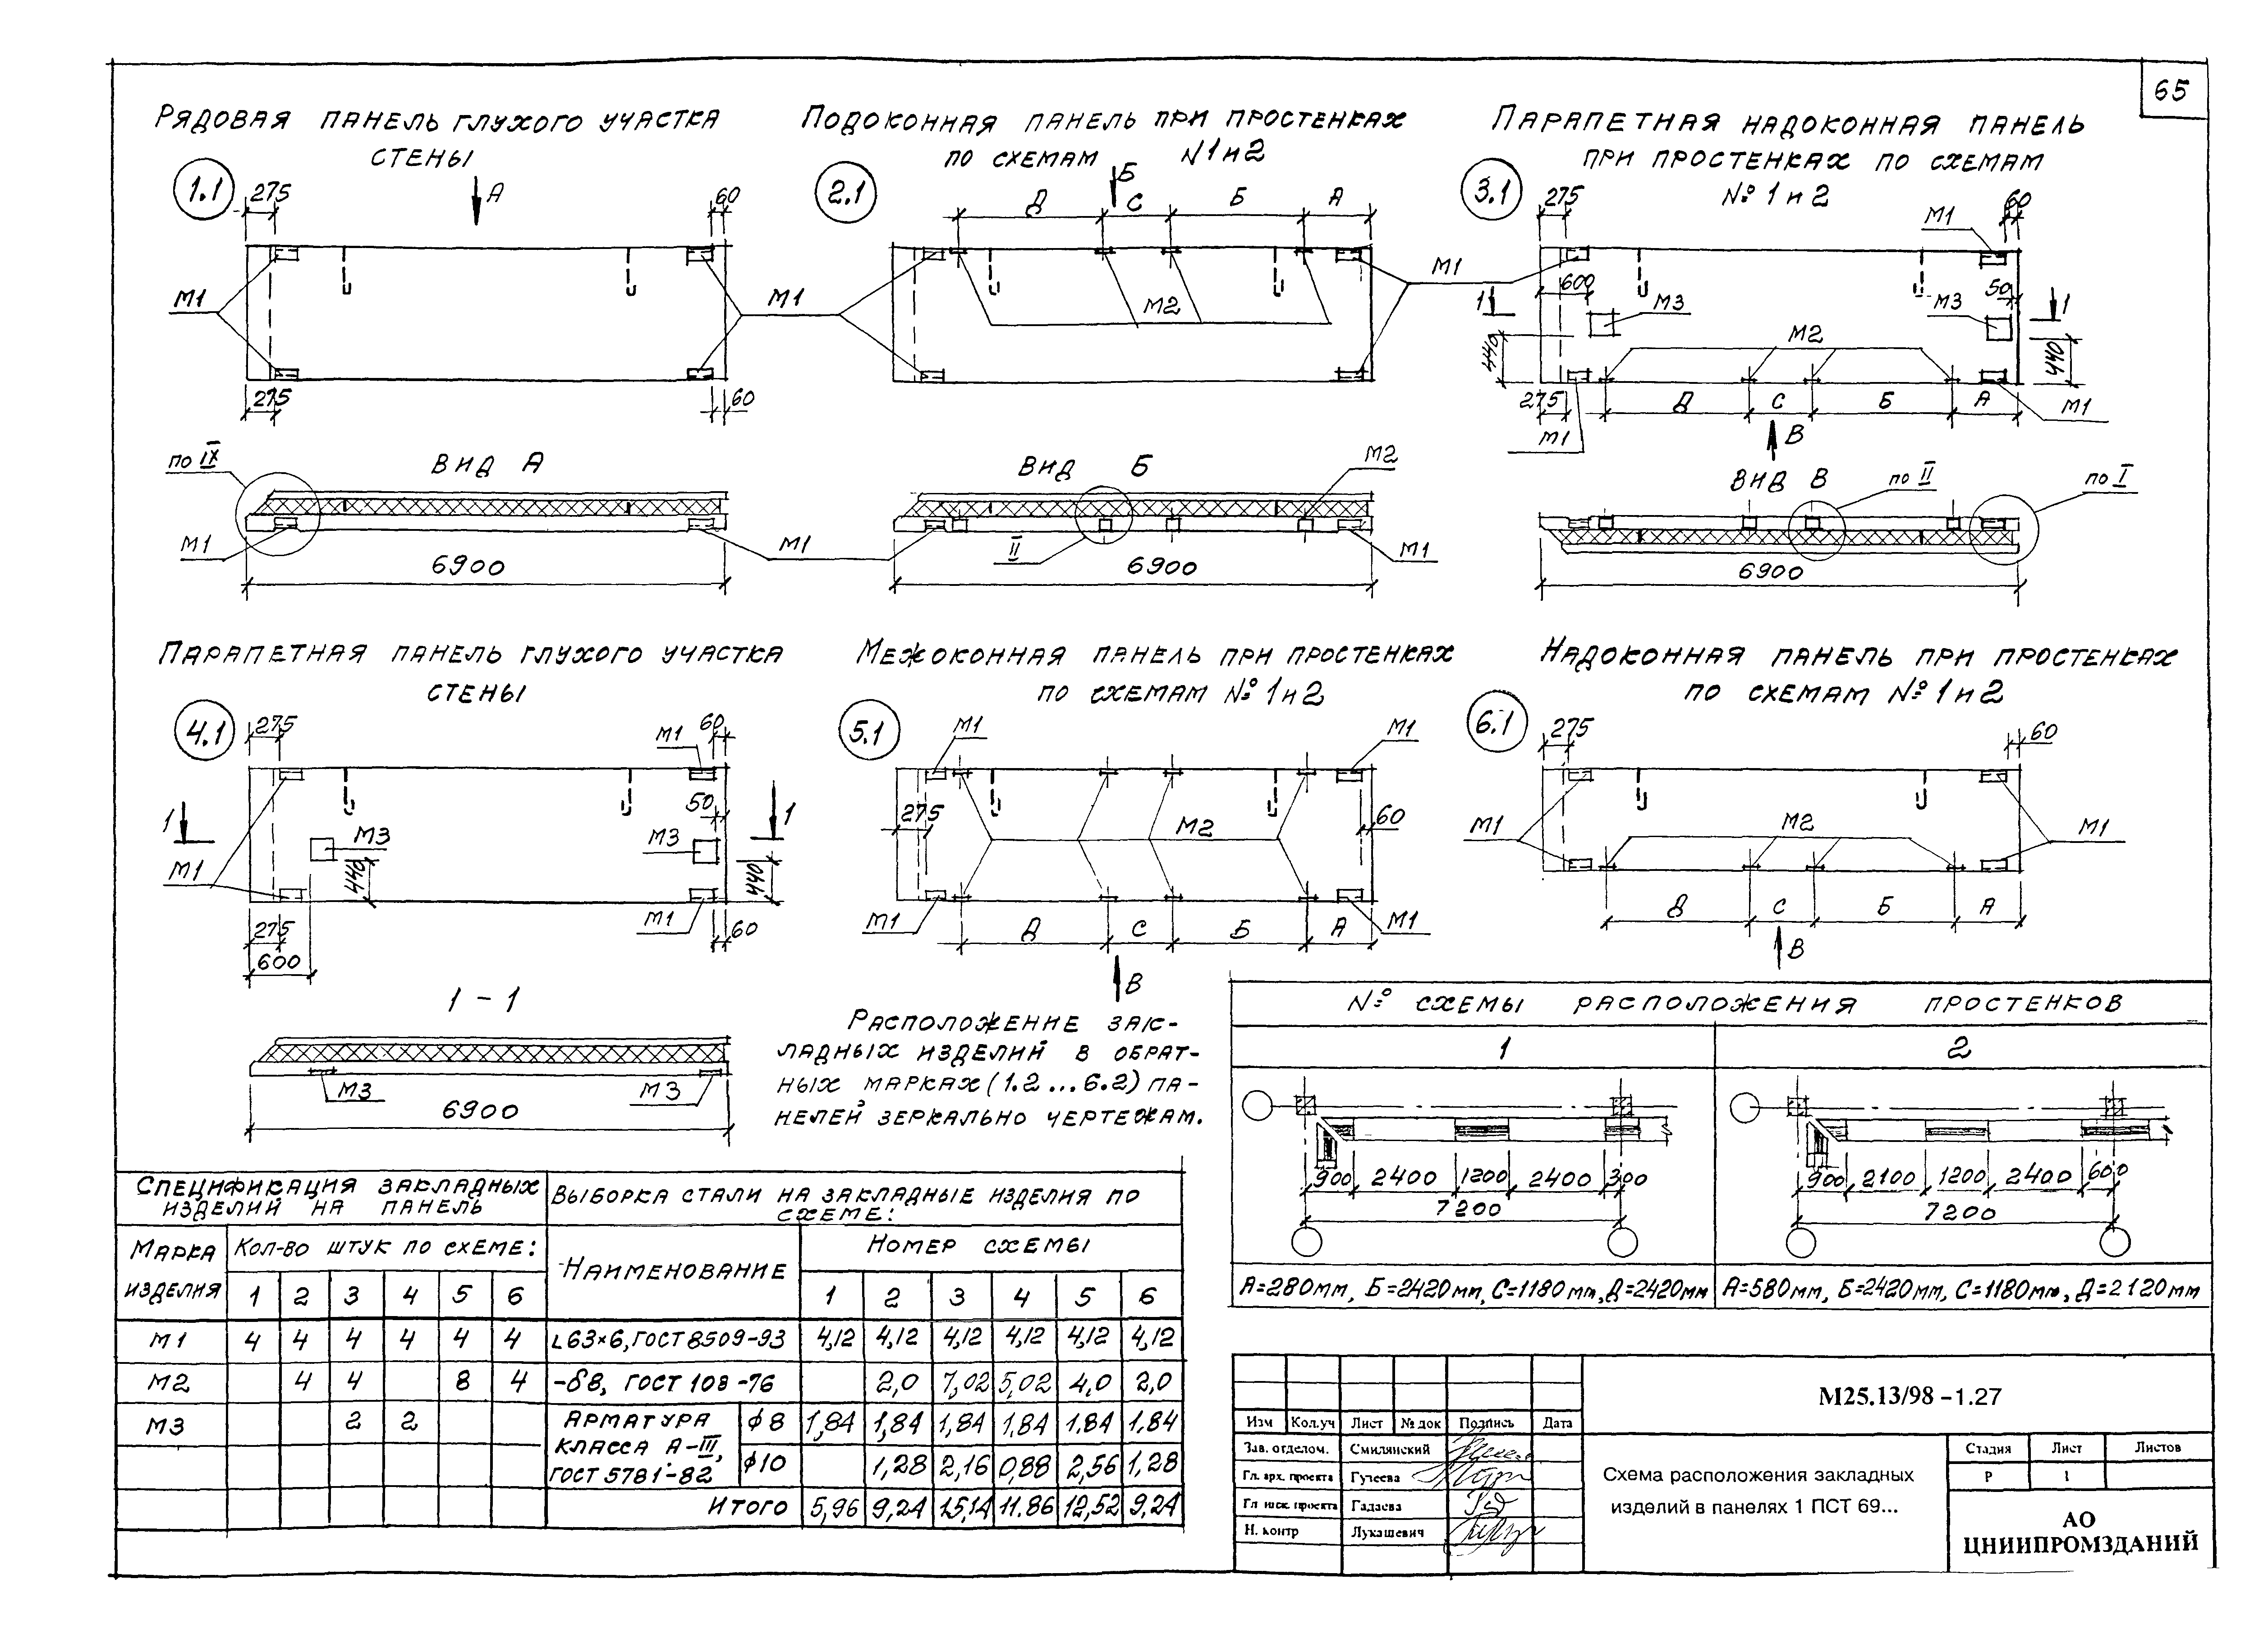 65
РЯДОВАЯ ПАНЕЛЬ ГЛУХОГО УЧАСТКА
СТЕНЫ
1.1
275
А
60
М1
М1
275
60
по IX
ВИД А
М1
М1
6900
ПОДОКОННАЯ ПАНЕЛЬ ПРИ ПРОСТЕНКАХ
ПО СХЕМАМ N1 и 2
2.1
Б
Д С Б А
М2
М1
ВИД Б
М2
II
М1
6900
ПАРАПЕТНАЯ НАДОКОННАЯ ПАНЕЛЬ
ПРИ ПРОСТЕНКАХ ПО СХЕМАМ
№ 1 и 2
3.1
275
М1
60
600
50
1
М3
М3
1
М2
440
440
275
Д С Б А
М1
М1
В
ВИД В
по II
по I
6900
ПАРАПЕТНАЯ ПАНЕЛЬ ГЛУХОГО УЧАСТКА
СТЕНЫ
4.1
275
М1
60
50
1
М3
М3
1
М1
440
440
М1
275
60
600
1 - 1
М3
М3
6900
МЕЖОКОННАЯ ПАНЕЛЬ ПРИ ПРОСТЕНКАХ
ПО СХЕМАМ № 1 и 2
5.1
М1
М1
275
М2
60
М1
Д С Б А
М1
В
НАДОКОННАЯ ПАНЕЛЬ ПРИ ПРОСТЕНКАХ
ПО СХЕМАМ № 1 и 2
6.1
275
60
М1
М2
М1
Д С Б А
В
РАСПОЛОЖЕНИЕ ЗАК-
ЛАДНЫХ ИЗДЕЛИЙ В ОБРАТ-
НЫХ МАРКАХ (1.2...6.2) ПА-
НЕЛЕЙ ЗЕРКАЛЬНО ЧЕРТЕЖАМ.
№ СХЕМЫ РАСПОЛОЖЕНИЯ ПРОСТЕНКОВ
1 2
900 2400 1200 2400 300
7200
900 2100 1200 2400 600
7200
А=280мм, Б=2420мм, С=1180мм, Д=2420мм
А=580мм, Б=2420мм, С=1180мм, Д=2120мм
СПЕЦИФИКАЦИЯ ЗАКЛАДНЫХ
ИЗДЕЛИЙ НА ПАНЕЛЬ
ВЫБОРКА СТАЛИ НА ЗАКЛАДНЫЕ ИЗДЕЛИЯ ПО
СХЕМЕ:
МАРКА
ИЗДЕЛИЯ
КОЛ-ВО ШТУК ПО СХЕМЕ:
НАИМЕНОВАНИЕ
НОМЕР СХЕМЫ
1 2 3 4 5 6
1 2 3 4 5 6
М1 4 4 4 4 4 4
L63×6, ГОСТ 8509-93 4,12 4,12 4,12 4,12 4,12 4,12
М2 4 4 8 4
-δ8, ГОСТ 103-76 2,0 7,02 5,02 4,0 2,0
М3 2 2
АРМАТУРА
КЛАССА А-III,
ГОСТ 5781-82
ф8 1,84 1,84 1,84 1,84 1.84 1.84
ф10 1,28 2,16 0,88 2,56 1,28
ИТОГО 5,96 9,24 15,14 11.86 12,52 9,24
М25.13/98 -1.27
Изм Кол.уч Лист № док Подпись Дата
Зав. отделом. Смилянский
Гл. арх. проекта Гучеева
Гл инж. проекта Гадаева
Н. контр Лукашевич
Схема расположения закладных
изделий в панелях 1 ПСТ 69...
Стадия Лист Листов
Р 1
АО
ЦНИИПРОМЗДАНИЙ